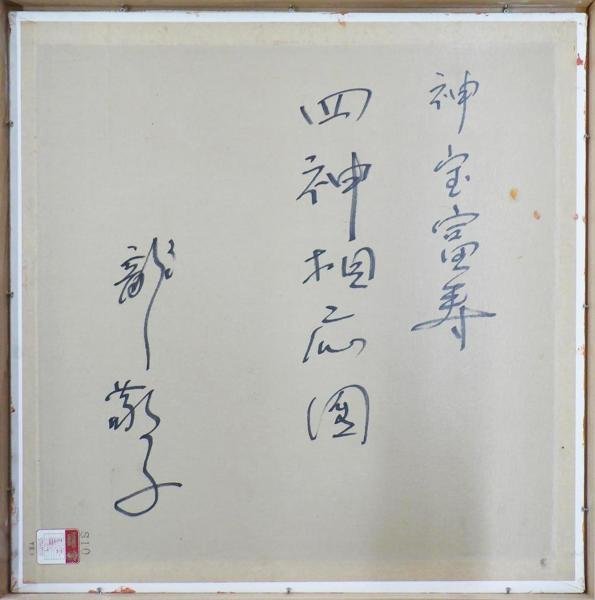 神宝富寿
四神相応図
龍敬子
S10